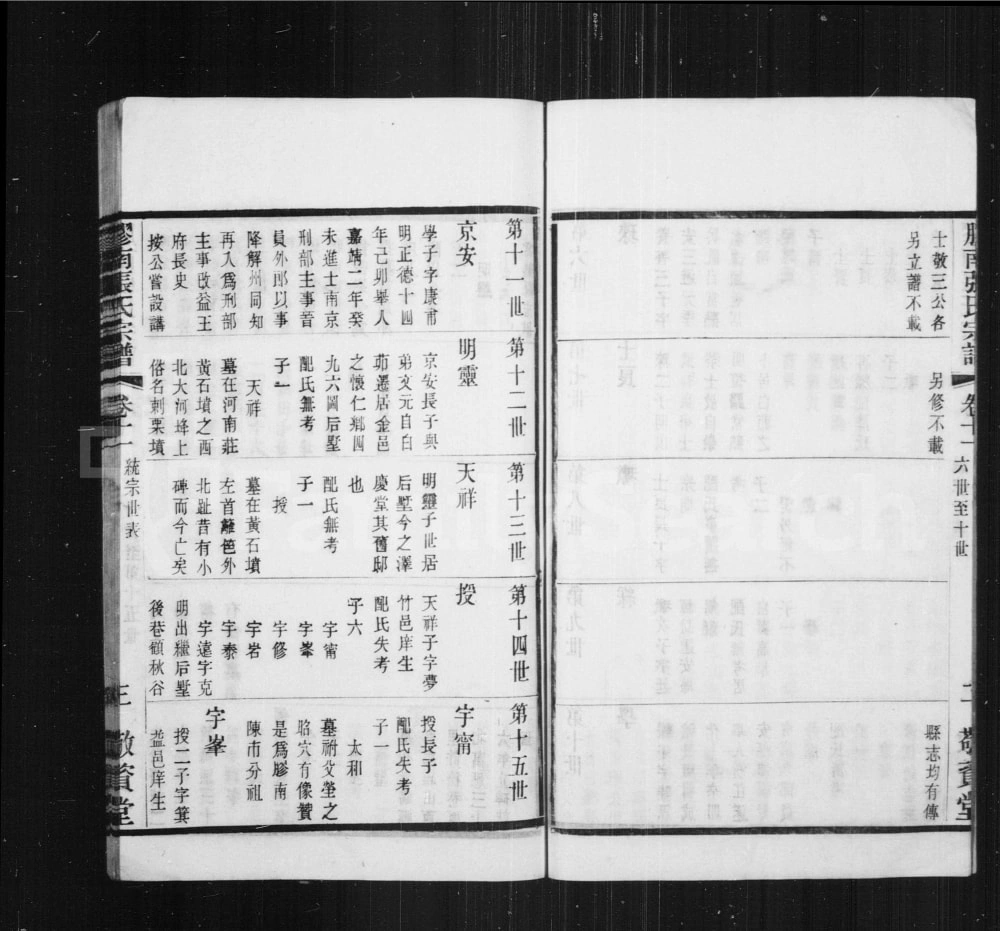 膠南張氏宗譜 卷十一 六世至十世 二 敬資堂
士敬三公各
另立譜不載
另修不載
縣志均有傳
第十一世
京安
學子字康甫
明正德十四
年己卯舉人
嘉靖二年癸
未進士南京
刑部主事晉
員外郎以事
降解州同知
再入爲刑部
主事改益王
府長史
按公嘗設講
第十二世
明靈
京安長子與
弟文元自白
茆遷居金邑
之懷仁鄉四
九六圖后墅
配氏無考
子一
天祥
墓在河南莊
黃石墳之西
北大河烽上
俗名刺栗墳
第十三世
天祥
明靈子世居
后墅今之澤
慶堂其舊邸
也
配氏無考
子一
授
墓在黃石墳
左首籬笆外
北趾昔有小
碑而今亡矣
第十四世
授
天祥子字夢
竹邑庠生
配氏失考
子六
字甯
字峯
字修
字岩
字泰
字遠字克
明出繼后墅
後巷顧秋谷
第十五世
字甯
授長子
配氏失考
子一
太和
墓祔父塋之
昭穴有像贊
是爲膠南
陳市分祖
字峯
授二子字箕
益邑庠生
膠南張氏宗譜 卷十一 統宗世表 三 敬資堂